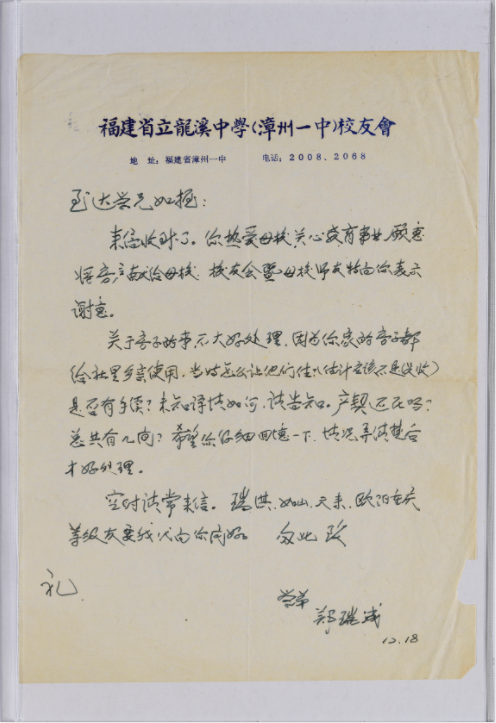 福建省立龍溪中學(漳州一中)校友會
地 址：福建省漳州一中 电话：2008、2068
达学兄如握：
来信收到了。你热爱母校关心教育事业，愿意
将房产献给母校，校友会暨母校师友特向你表示
谢意。
关于房子的事不大好处理，因为你家的房子都
给社里多家使用，当时怎么让他们住（估计应该不是没收）
是否有手续？未知详情如何，请告知。产契还在吗？
总共有几间？希望你仔细回忆一下，情况弄清楚后
才好处理。
空时请常来信。瑞淇、如山、天来、欧阳
等级友要我代向你问好。 匆此 致
礼
学弟
郑瑞成
12.18